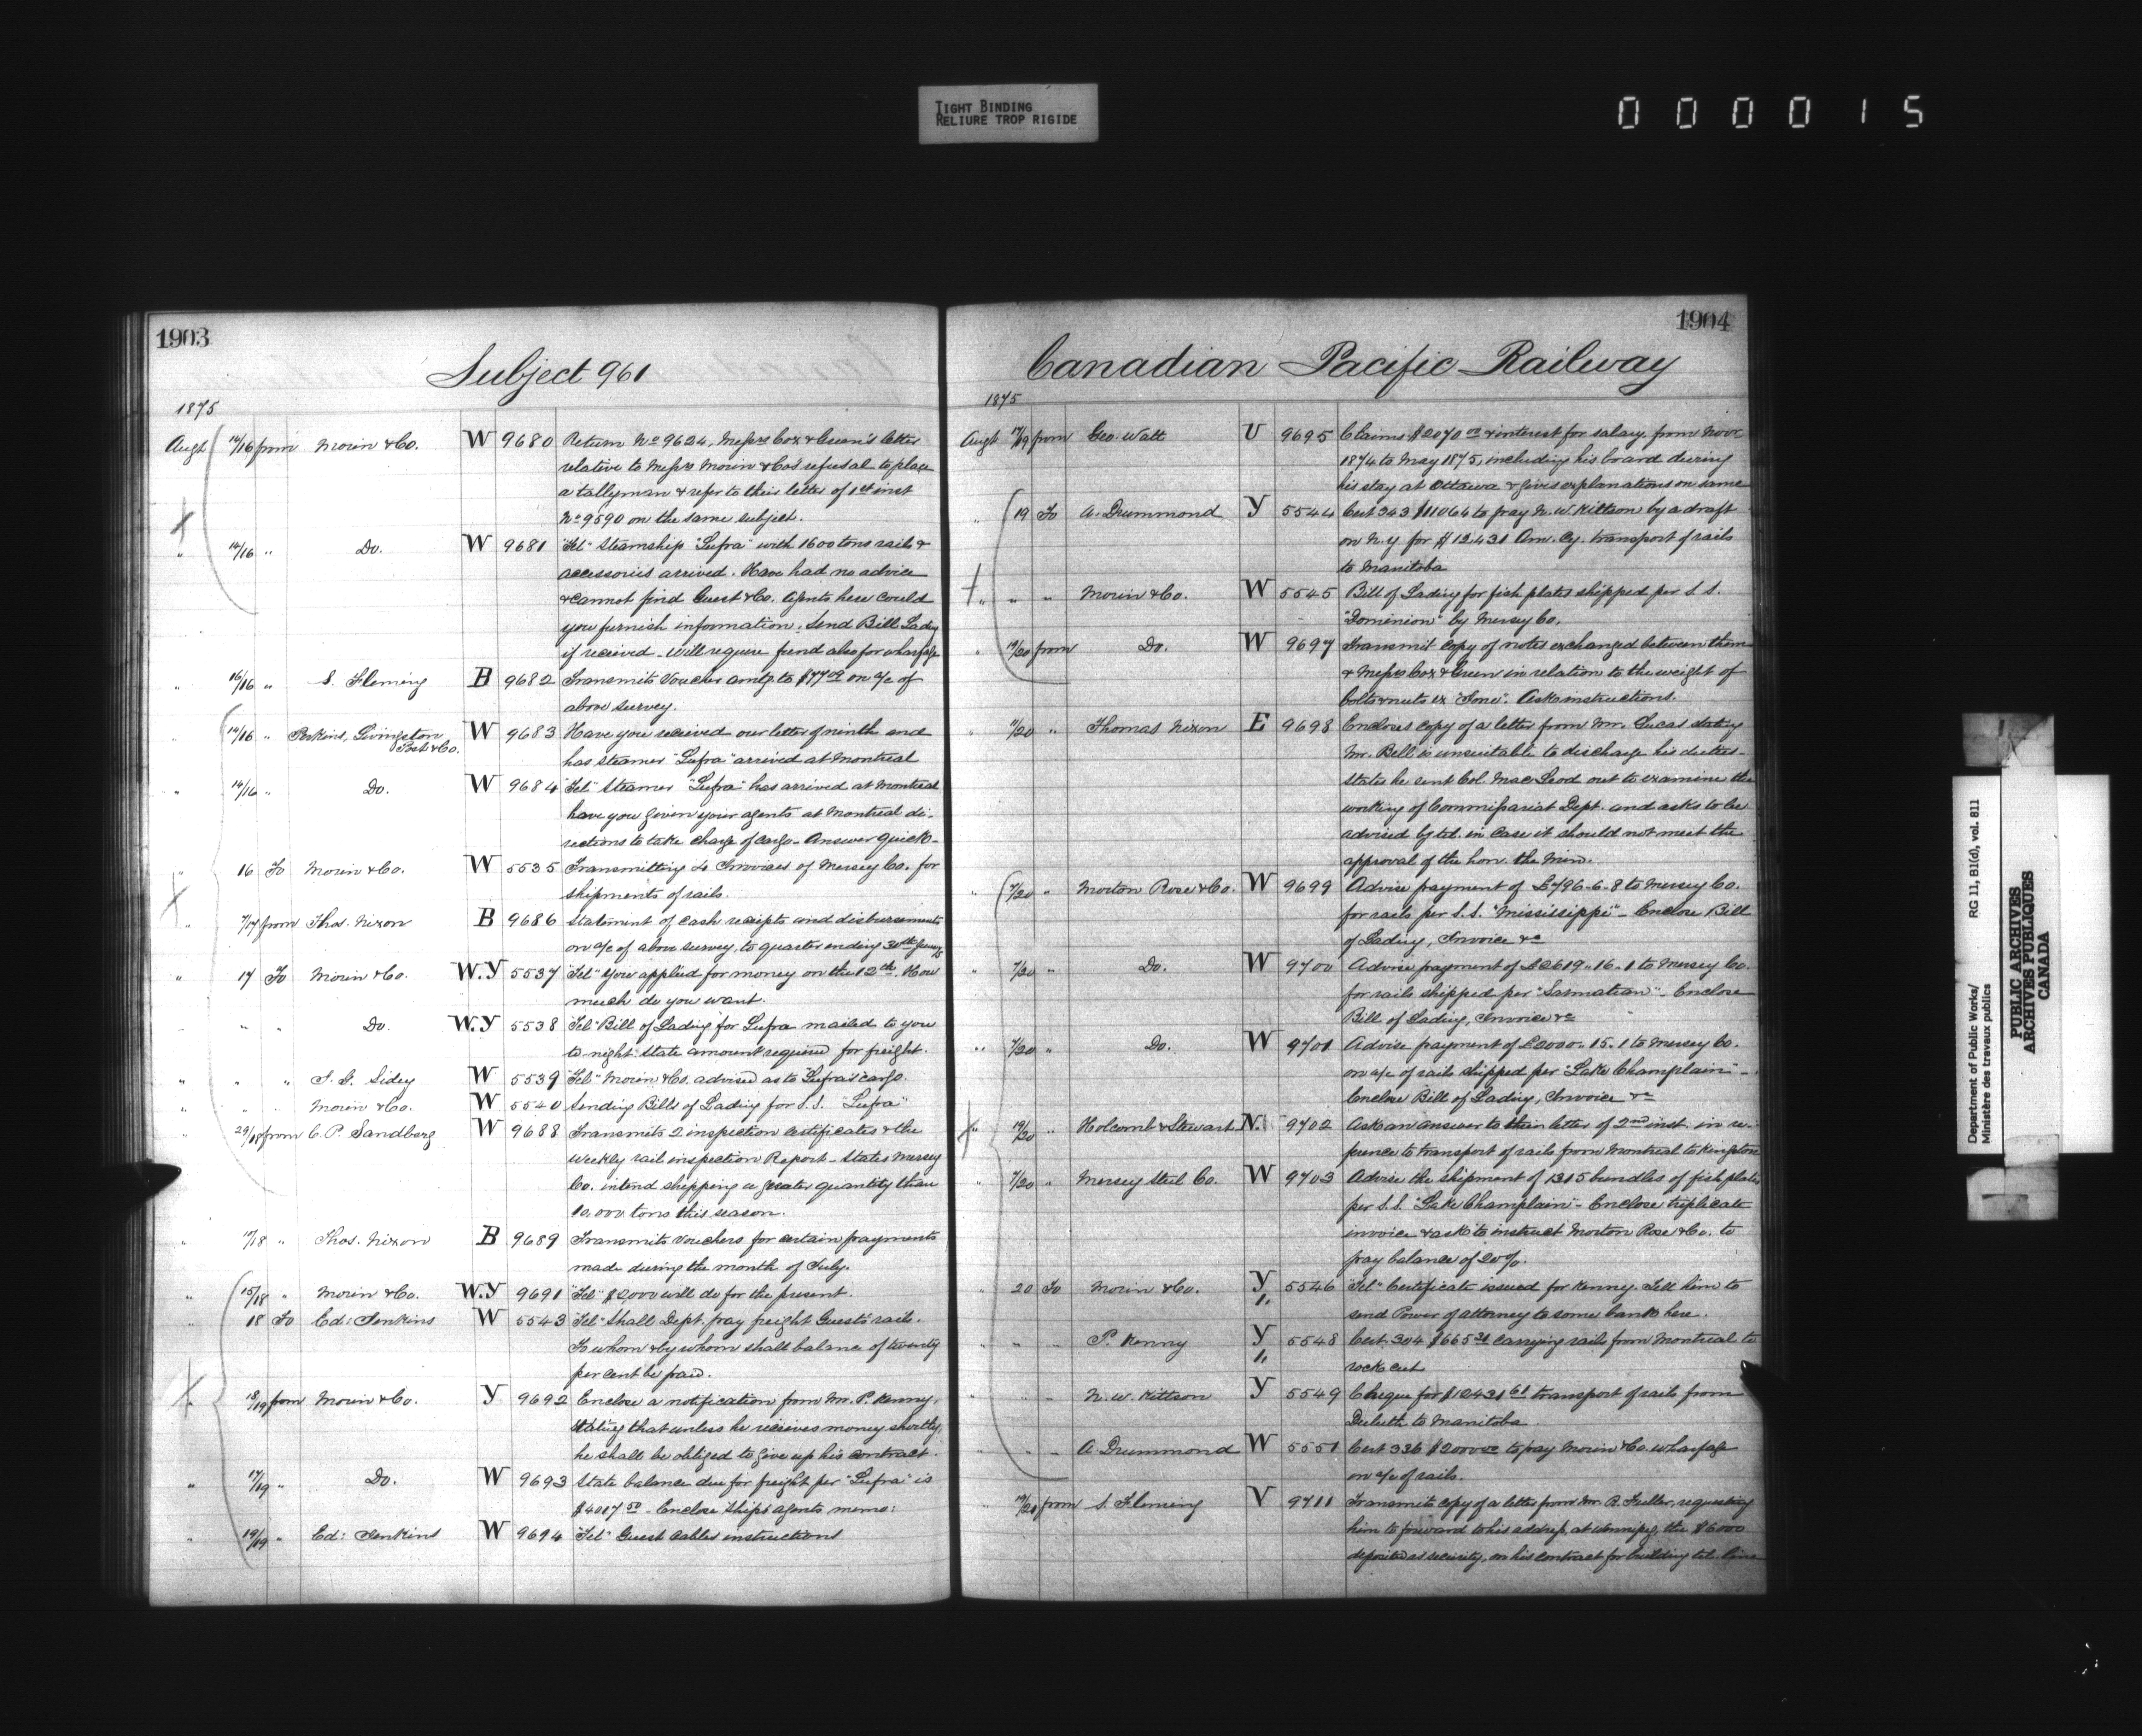 TIGHT BINDING
RELIURE TROP RIGIDE
000015
1903
Subject 961
1875
Augt 14/16 from Morin & Co. W 9680 Return No 9624, Messrs Cox & Green's letter
relative to Messrs Morin & Co's refusal to place
a tallyman & refer to their letter of 1st inst
No 9590 on the same subject.
" 14/16 " Do. W 9681 "Tel" Steamship "Lufra" with 1600 tons rails &
accessories arrived. Have had no advice
& cannot find Guest & Co. Agents here could
you furnish information. Send Bill Lading
if received - Will require fund also for wharfage
" 16/16 " S. Fleming B 9682 Transmits Voucher amtg. to $77 on a/c of
above survey.
" 14/16 " Perkins, Livingston Post & Co. W 9683 Have you received our letter of ninth and
has steamer "Lufra" arrived at Montreal
" 14/16 " Do. W 9684 "Tel" Steamer "Lufra" has arrived at Montreal
have you given your agents at Montreal di-
rections to take charge of cargo - Answer quick -
" 16 To Morin & Co. W 5535 Transmitting 4 Invoices of Mersey Co. for
shipments of rails.
" 7/17 from Thos. Nixon B 9686 Statement of cash receipts and disbursements
on a/c of above survey, to quarter ending 30th June 75
" 17 To Morin & Co. W.Y 5537 "Tel" You applied for money on the 12th. How
much do you want.
" " Do. W.Y 5538 "Tel" Bill of Lading for Lufra mailed to you
to night. State amount required for freight.
" " " J. G. Sidey W 5539 "Tel" Morin & Co. advised as to "Lufra's" cargo.
" " " Morin & Co. W 5540 Sending Bills of Lading for S.S. "Lufra"
" 29/18 from C. P. Sandberg W 9688 Transmits 2 inspection certificates & the
weekly rail inspection Report - States Mersey
Co. intend shipping a greater quantity than
10,000 tons this season.
" 11/18 " Thos. Nixon B 9689 Transmits Vouchers for certain payments
made during the month of July.
" 15/18 " Morin & Co. W.Y 9691 "Tel" $2,000 will do for the present.
" 18 To Ed: Jenkins W 5543 "Tel" Shall Dept. pay freight Guest's rails.
To whom & by whom shall balance of twenty
per cent be paid.
" 18/19 from Morin & Co. Y 9692 Enclose a notification from Mr. P. Kenny,
stating that unless he receives money shortly,
he shall be obliged to give up his contract.
" 17/19 " Do. W 9693 State balance due for freight per "Lufra" is
$4017 50 - Enclose Ships agents memo:
" 19/19 " Ed: Jenkins W 9694 "Tel" Guest cables instructions
1904
Canadian Pacific Railway
1875
Augt 17/19 from Geo. Watt U 9695 Claims $2070 00 & interest for salary from Novr
1874 to May 1875, including his board during
his stay at Ottawa & gives explanations on same
" 19 To A. Drummond Y 5544 Cert 343 $11064 to pay N. W. Kittson by a draft
on N.Y for $12,431 Am. Cy. transport of rails
to Manitoba
" " " Morin & Co. W 5545 Bill of Lading for fish plates shipped per S.S.
"Dominion" by Mersey Co.
" 19/20 from Do. W 9697 Transmit copy of notes exchanged between them
& Messrs Cox & Green in relation to the weight of
bolts & nuts ex "Ione". Ask instructions.
" 11/20 " Thomas Nixon E 9698 Encloses copy of a letter from Mr. Lucas stating
Mr. Bell is unsuitable to discharge his duties -
States he sent Col. MacLeod out to examine the
working of Commissariat Dept. and asks to be
advised by tel. in case it should not meet the
approval of the hon. the Min.
" 7/20 " Morton Rose & Co. W 9699 Advise payment of £796-6-8 to Mersey Co.
for rails per S.S. "Mississippi" - Enclose Bill
of Lading, Invoice &c
" 7/20 " Do. W 9700 Advise payment of £2619-16-1 to Mersey Co.
for rails shipped per "Sarmatian" - Enclose
Bill of Lading, Invoice &c
" 7/20 " Do. W 9701 Advise payment of £2000-15-1 to Mersey Co.
on a/c of rails shipped per "Lake Champlain" -
Enclose Bill of Lading, Invoice &c
" 19/20 " Holcomb & Stewart N. 9702 Ask an answer to their letter of 2nd inst. in re-
ference to transport of rails from Montreal to Kingston
" 7/20 " Mersey Steel Co. W 9703 Advise the shipment of 1315 bundles of fish plates
per S.S. "Lake Champlain" - Enclose triplicate
invoice & ask to instruct Morton Rose & Co. to
pay balance of 20%.
" 20 To Morin & Co. Y " 5546 "Tel" Certificate issued for Kenny. Tell him to
send Power of attorney to some bank here.
" " " P. Kenny Y " 5548 Cert. 304 $665 carrying rails from Montreal to
rock cut
" " " N. W. Kittson Y 5549 Cheque for $12431 61 transport of rails from
Duluth to Manitoba.
" " " A. Drummond W 5551 Cert 336 $2000 00 to pay Morin & Co. wharfage
on a/c of rails.
" 19/20 from S. Fleming V 9711 Transmit copy of a letter from Mr. R. Fuller, requesting
him to forward to his address, at Winnipeg, the $6000
deposited as security, on his contract for building tel. line
Department of Public Works/ RG 11, B1(d), vol. 811
Ministère des travaux publics
PUBLIC ARCHIVES
ARCHIVES PUBLIQUES
CANADA